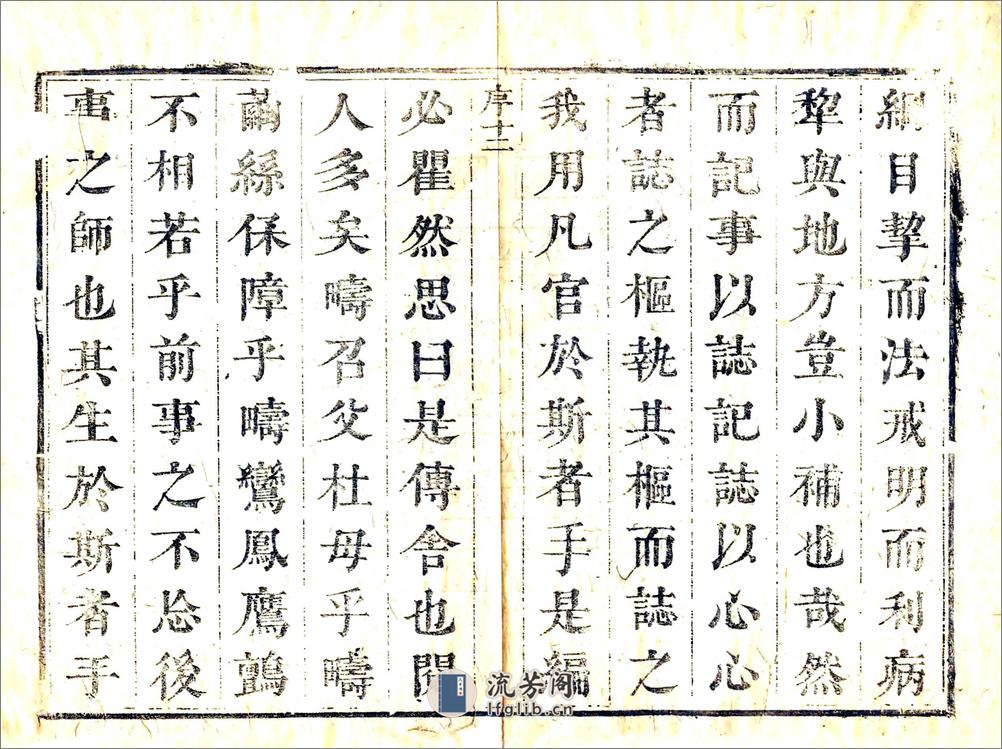 綱目挈而法戒明而利病
犂與地方豈小補也哉然
而記事以誌記誌以心心
者誌之樞執其樞而誌之
我用凡官於斯者手是編
序十二
必瞿然思曰是傳舍也閱
人多矣疇召父杜母乎疇
繭絲保障乎疇鸞鳳鷹鸇
不相若乎前事之不忘後
事之師也其生於斯者手
流芳阁
lfglib.cn